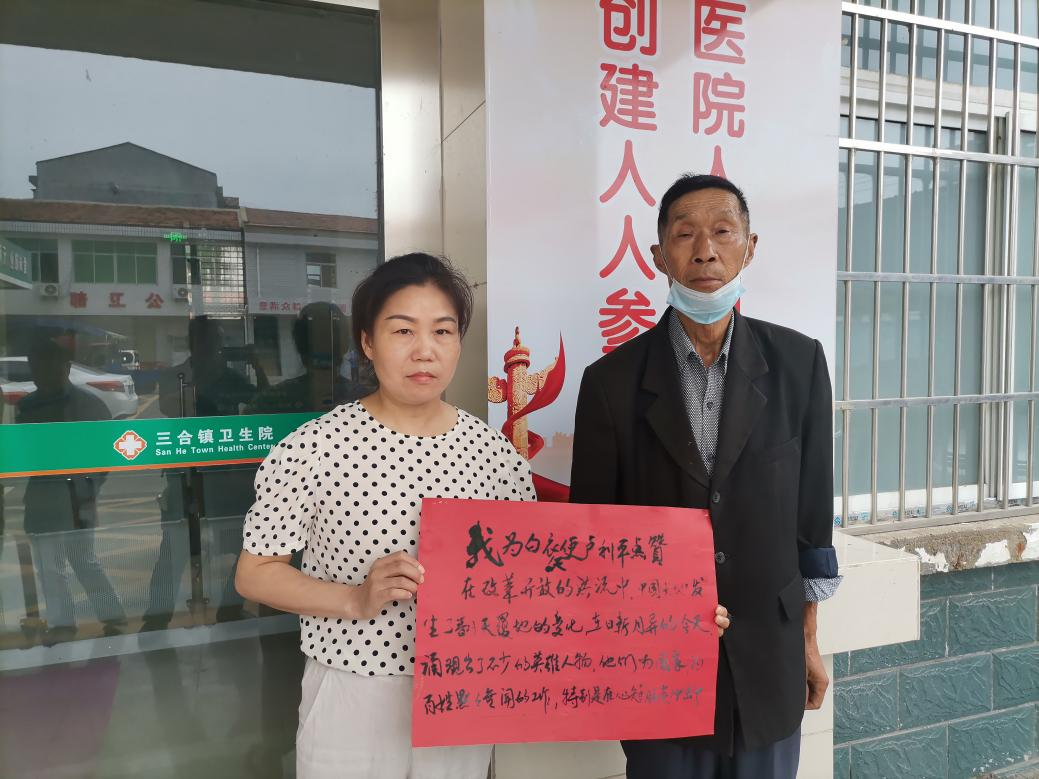 医院人
创建人人参
三合镇卫生院
San He Town Health Center
我为白衣使利平点赞
在改革开放的洪流中,中国发
生了翻天覆地的变化,在日新月异的今天,
涌现出了不少的英雄人物,他们为国家
百姓默默闻的工作,特别是在